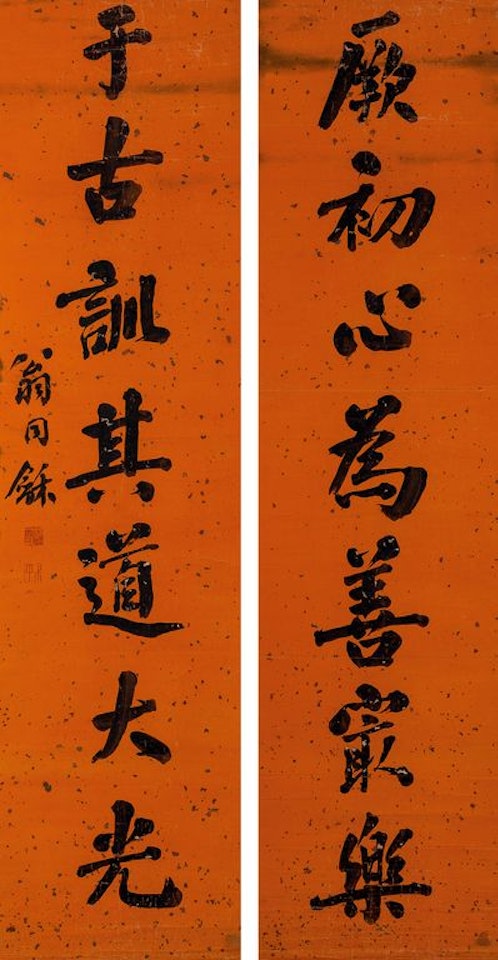 厥初心為善冣樂
于古訓其道大光
翁同龢